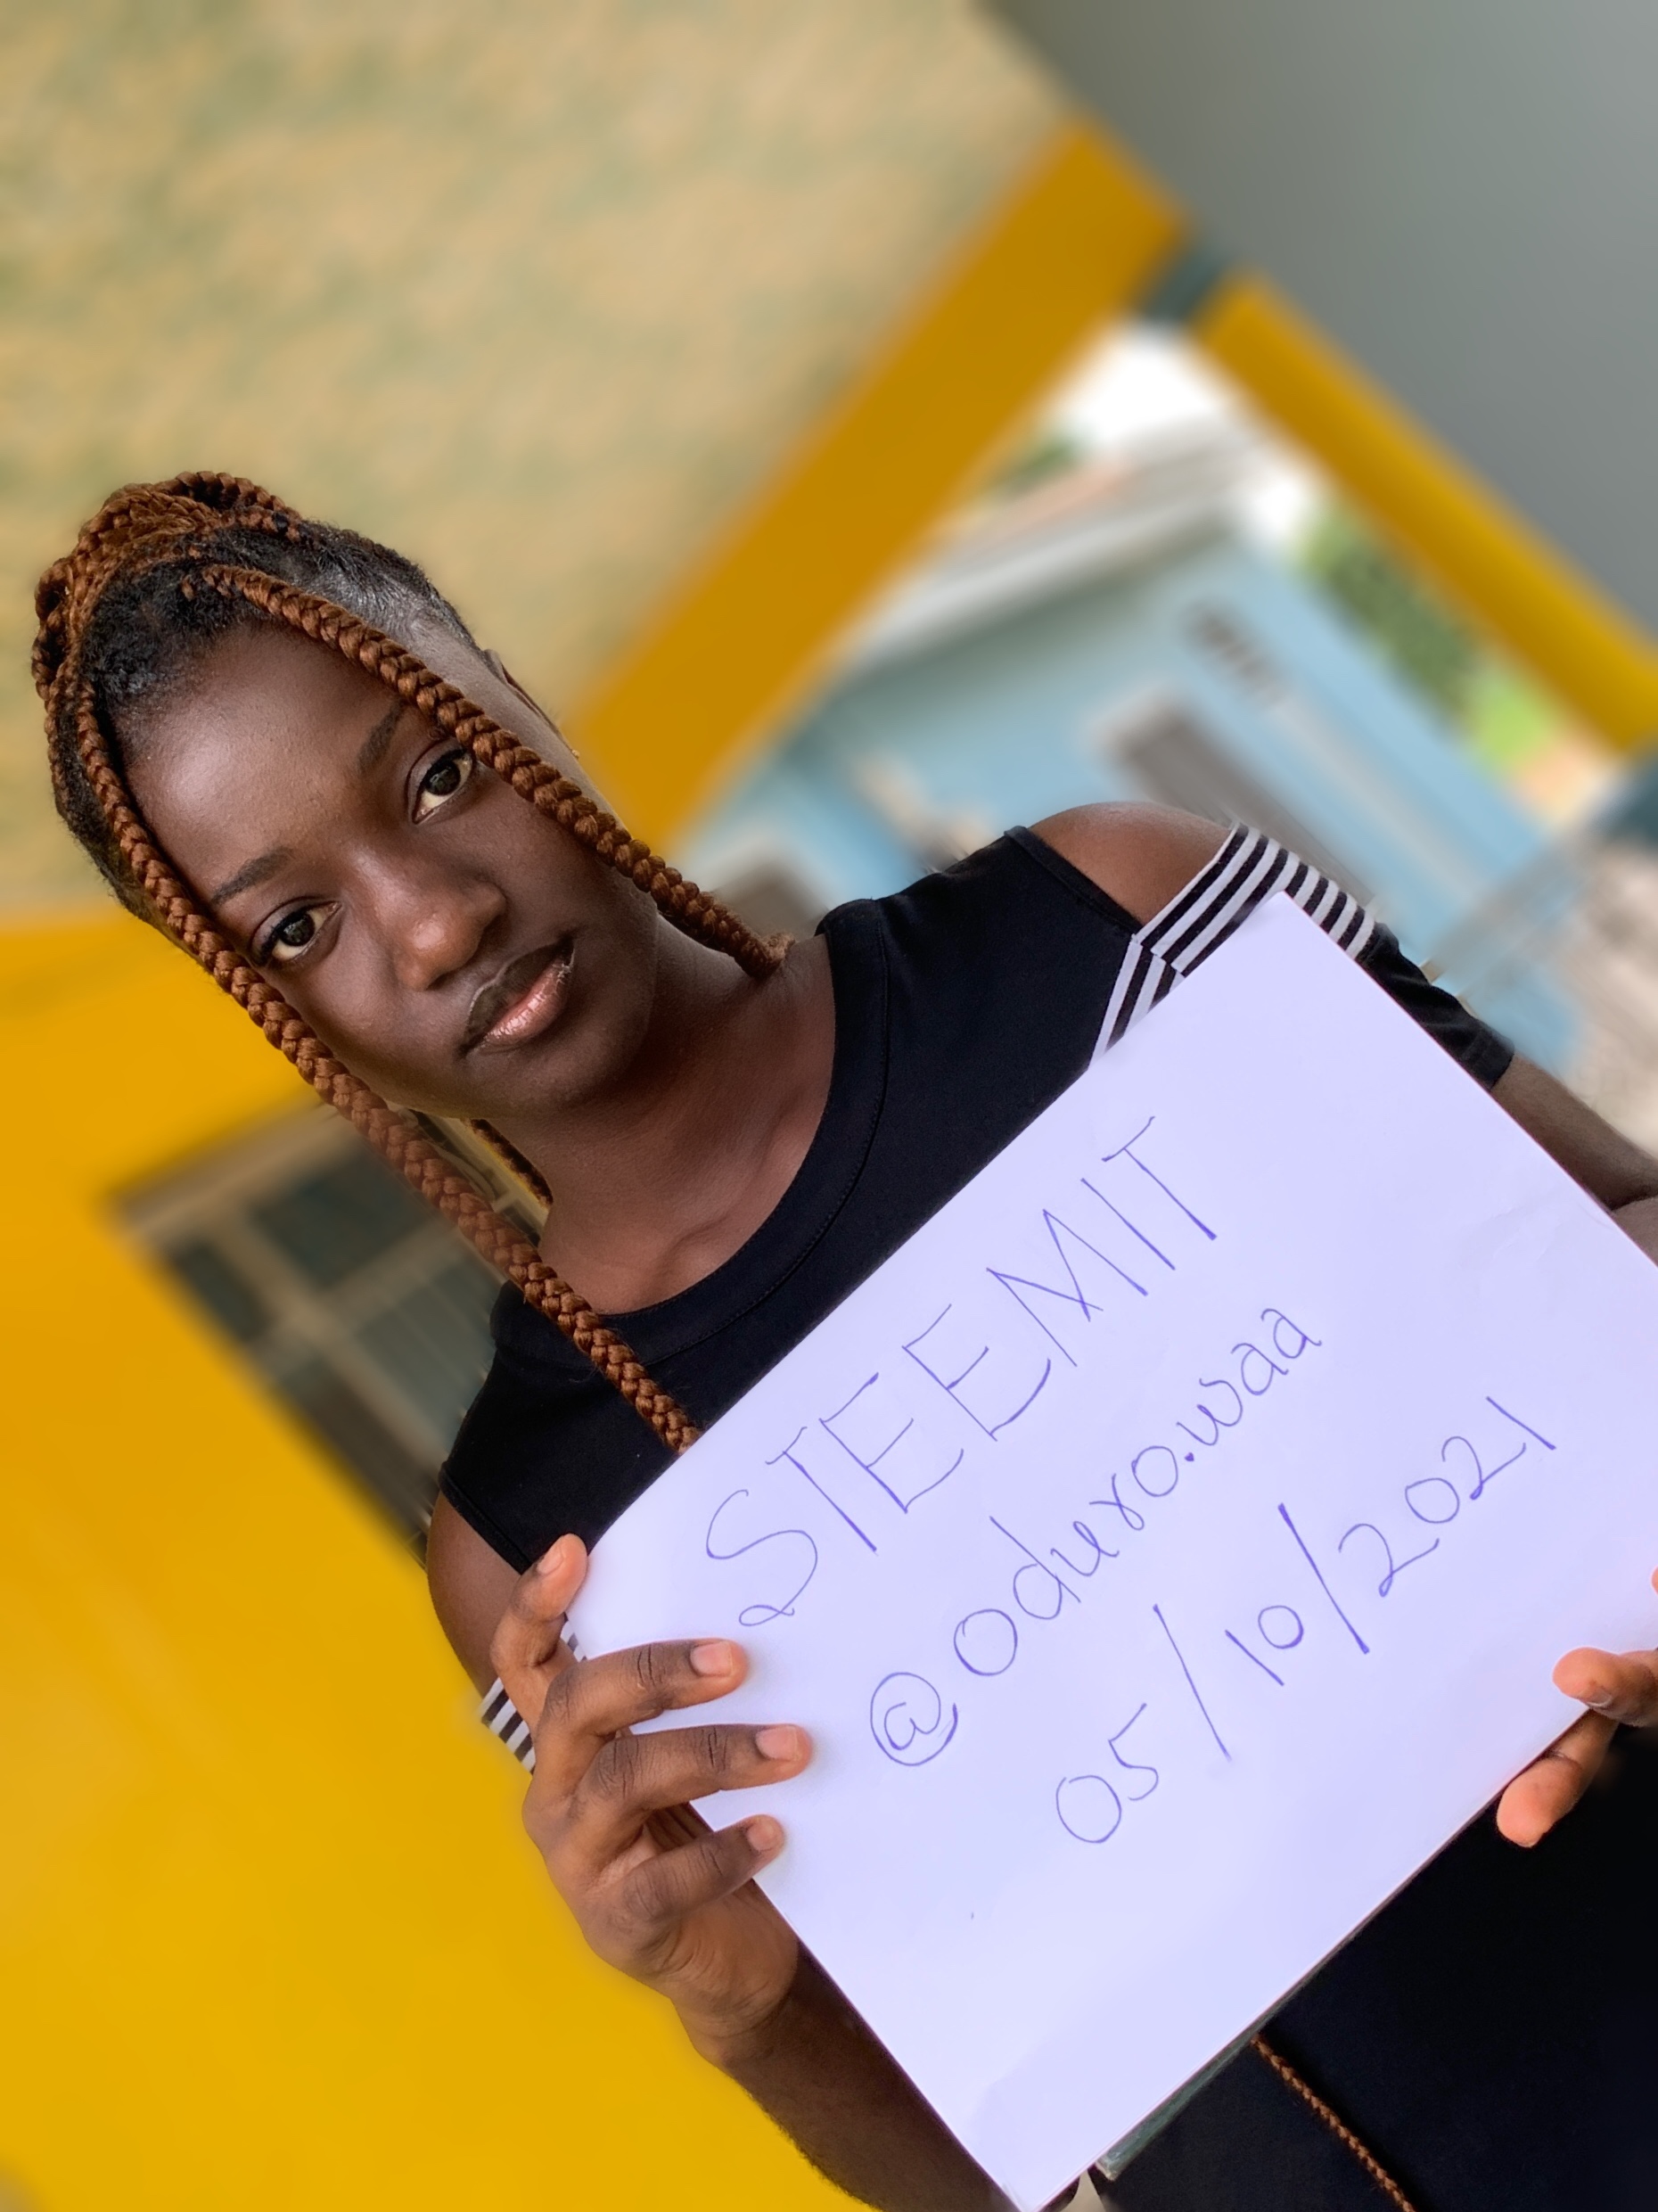 STEEMIT
@oduro.waa
05/10/2021